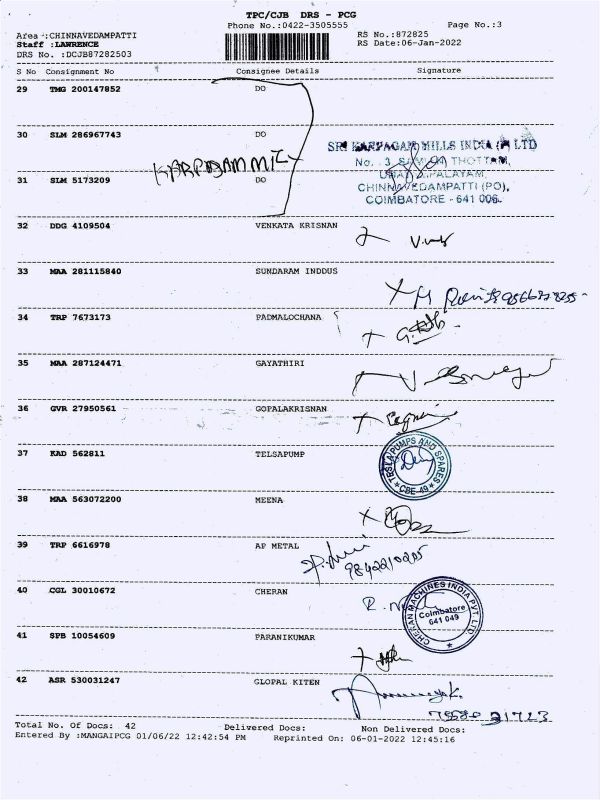 TPC/CJB DRS - PCG
Phone No.:0422-3505555 Page No.:3
Area :CHINNAVEDAMPATTI RS No.:872825
Staff :LAWRENCE RS Date:06-Jan-2022
DRS No. :DCJB87282503
S No Consignment No Consignee Details Signature
29 TMG 200147852 DO
30 SLM 286967743 DO
SRI KARPAGAM MILLS INDIA (P) LTD
KARPAGAM MILL
No. 3, THOTTAM,
31 SLM 5173209 DO
CHINNAVEDAMPATTI (PO),
COIMBATORE - 641 006.
32 DDG 4109504 VENKATA KRISNAN
33 MAA 281115840 SUNDARAM INDDUS
34 TRP 7673173 PADMALOCHANA
35 MAA 287124471 GAYATHIRI
36 GVR 27950561 GOPALAKRISNAN
37 KAD 562811 TELSAPUMP
TESLA PUMPS AND SPARES
CBE-49
38 MAA 563072200 MEENA
39 TRP 6616978 AP METAL
40 CGL 30010672 CHERAN
CHERAN MACHINES INDIA PVT. LTD
Coimbatore
641 049
41 SPB 10054609 PARANIKUMAR
42 ASR 530031247 GLOPAL KITEN
Total No. Of Docs: 42 Delivered Docs: Non Delivered Docs:
Entered By :MANGAIPCG 01/06/22 12:42:54 PM Reprinted On: 06-01-2022 12:45:16